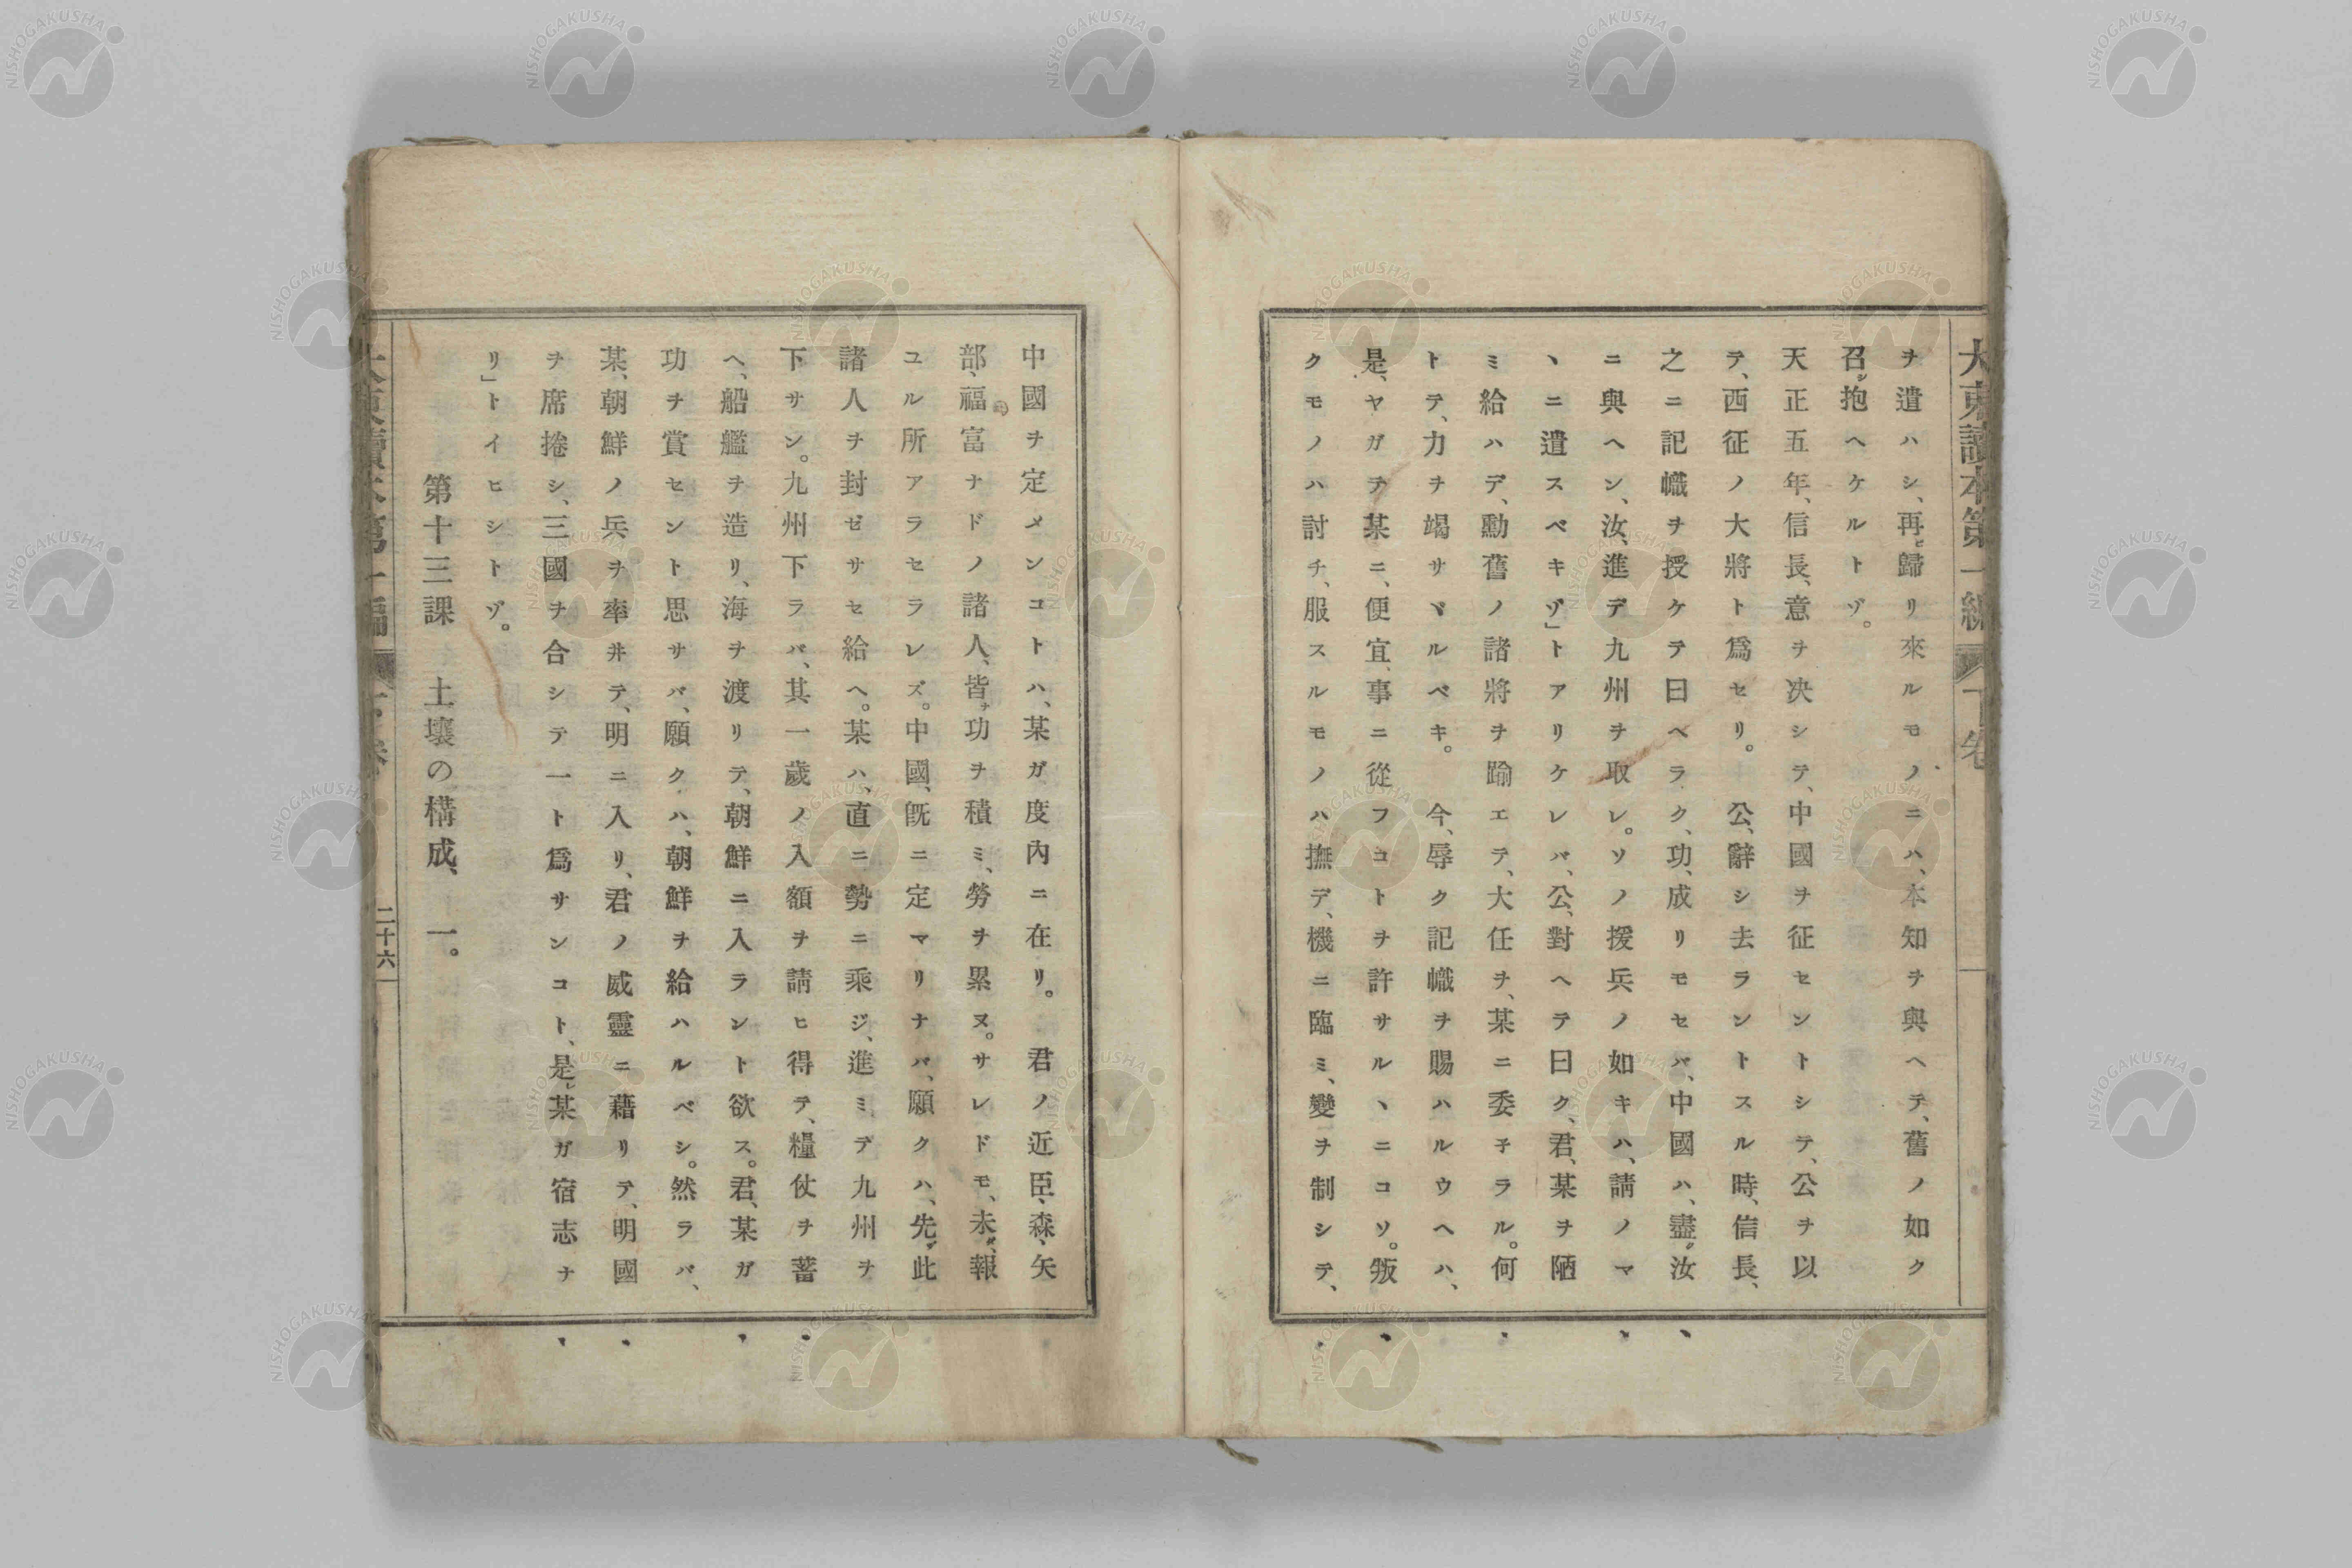 ヲ遣ハシ、再ヒ歸リ來ルモノニハ、本知ヲ與ヘテ、舊ノ如ク
召シ抱ヘケルトゾ。
天正五年、信長、意ヲ决シテ、中國ヲ征セントシテ、公ヲ以
テ、西征ノ大將ト爲セリ。公、辭シ去ラントスル時、信長、
之ニ記幟ヲ授ケテ曰ベラク、功、成リモセバ、中國ハ、盡ク汝
ニ與ヘン、汝、進デ九州ヲ取レ。ソノ援兵ノ如キハ、請ノマ
ヽニ遣スベキゾ」トアリケレバ、公、對ヘテ曰ク、君、某ヲ陋
ミ給ハデ、勳舊ノ諸將ヲ踰エテ、大任ヲ、某ニ委子ラル。何
トテ、力ヲ竭サヾルベキ。今、辱ク記幟ヲ賜ハルウヘハ、
是、ヤガテ某ニ、便宜、事ニ從フコトヲ許サルヽニコソ。叛
クモノハ討チ、服スルモノハ撫デ、機ニ臨ミ、變ヲ制シテ、
中國ヲ定メンコトハ、某ガ度內ニ在リ。君ノ近臣、森、矢
部、福富ナドノ諸人、皆ナ功ヲ積ミ、勞ヲ累ヌ。サレドモ、未ダ、報
ユル所アラセラレズ。中國、既ニ定マリナバ、願クハ、先ヅ此
諸人ヲ封ゼサセ給ヘ。某ハ、直ニ勢ニ乘ジ、進ミデ九州ヲ
下サン。九州下ラバ、其一歲ノ入額ヲ請ヒ得テ、糧仗ヲ蓄
ヘ、船艦ヲ造リ、海ヲ渡リテ、朝鮮ニ入ラント欲ス。君、某ガ
功ヲ賞セント思サバ、願クハ、朝鮮ヲ給ハルベシ。然ラバ、
某、朝鮮ノ兵ヲ率井テ、明ニ入リ、君ノ威靈ニ藉リテ、明國
ヲ席捲シ、三國ヲ合シテ一ト爲サンコト、是レ某ガ宿志ナ
リ」トイヒシトゾ。
第十三課 土壤の構成、一。
二十六
NISHOGAKUSHA